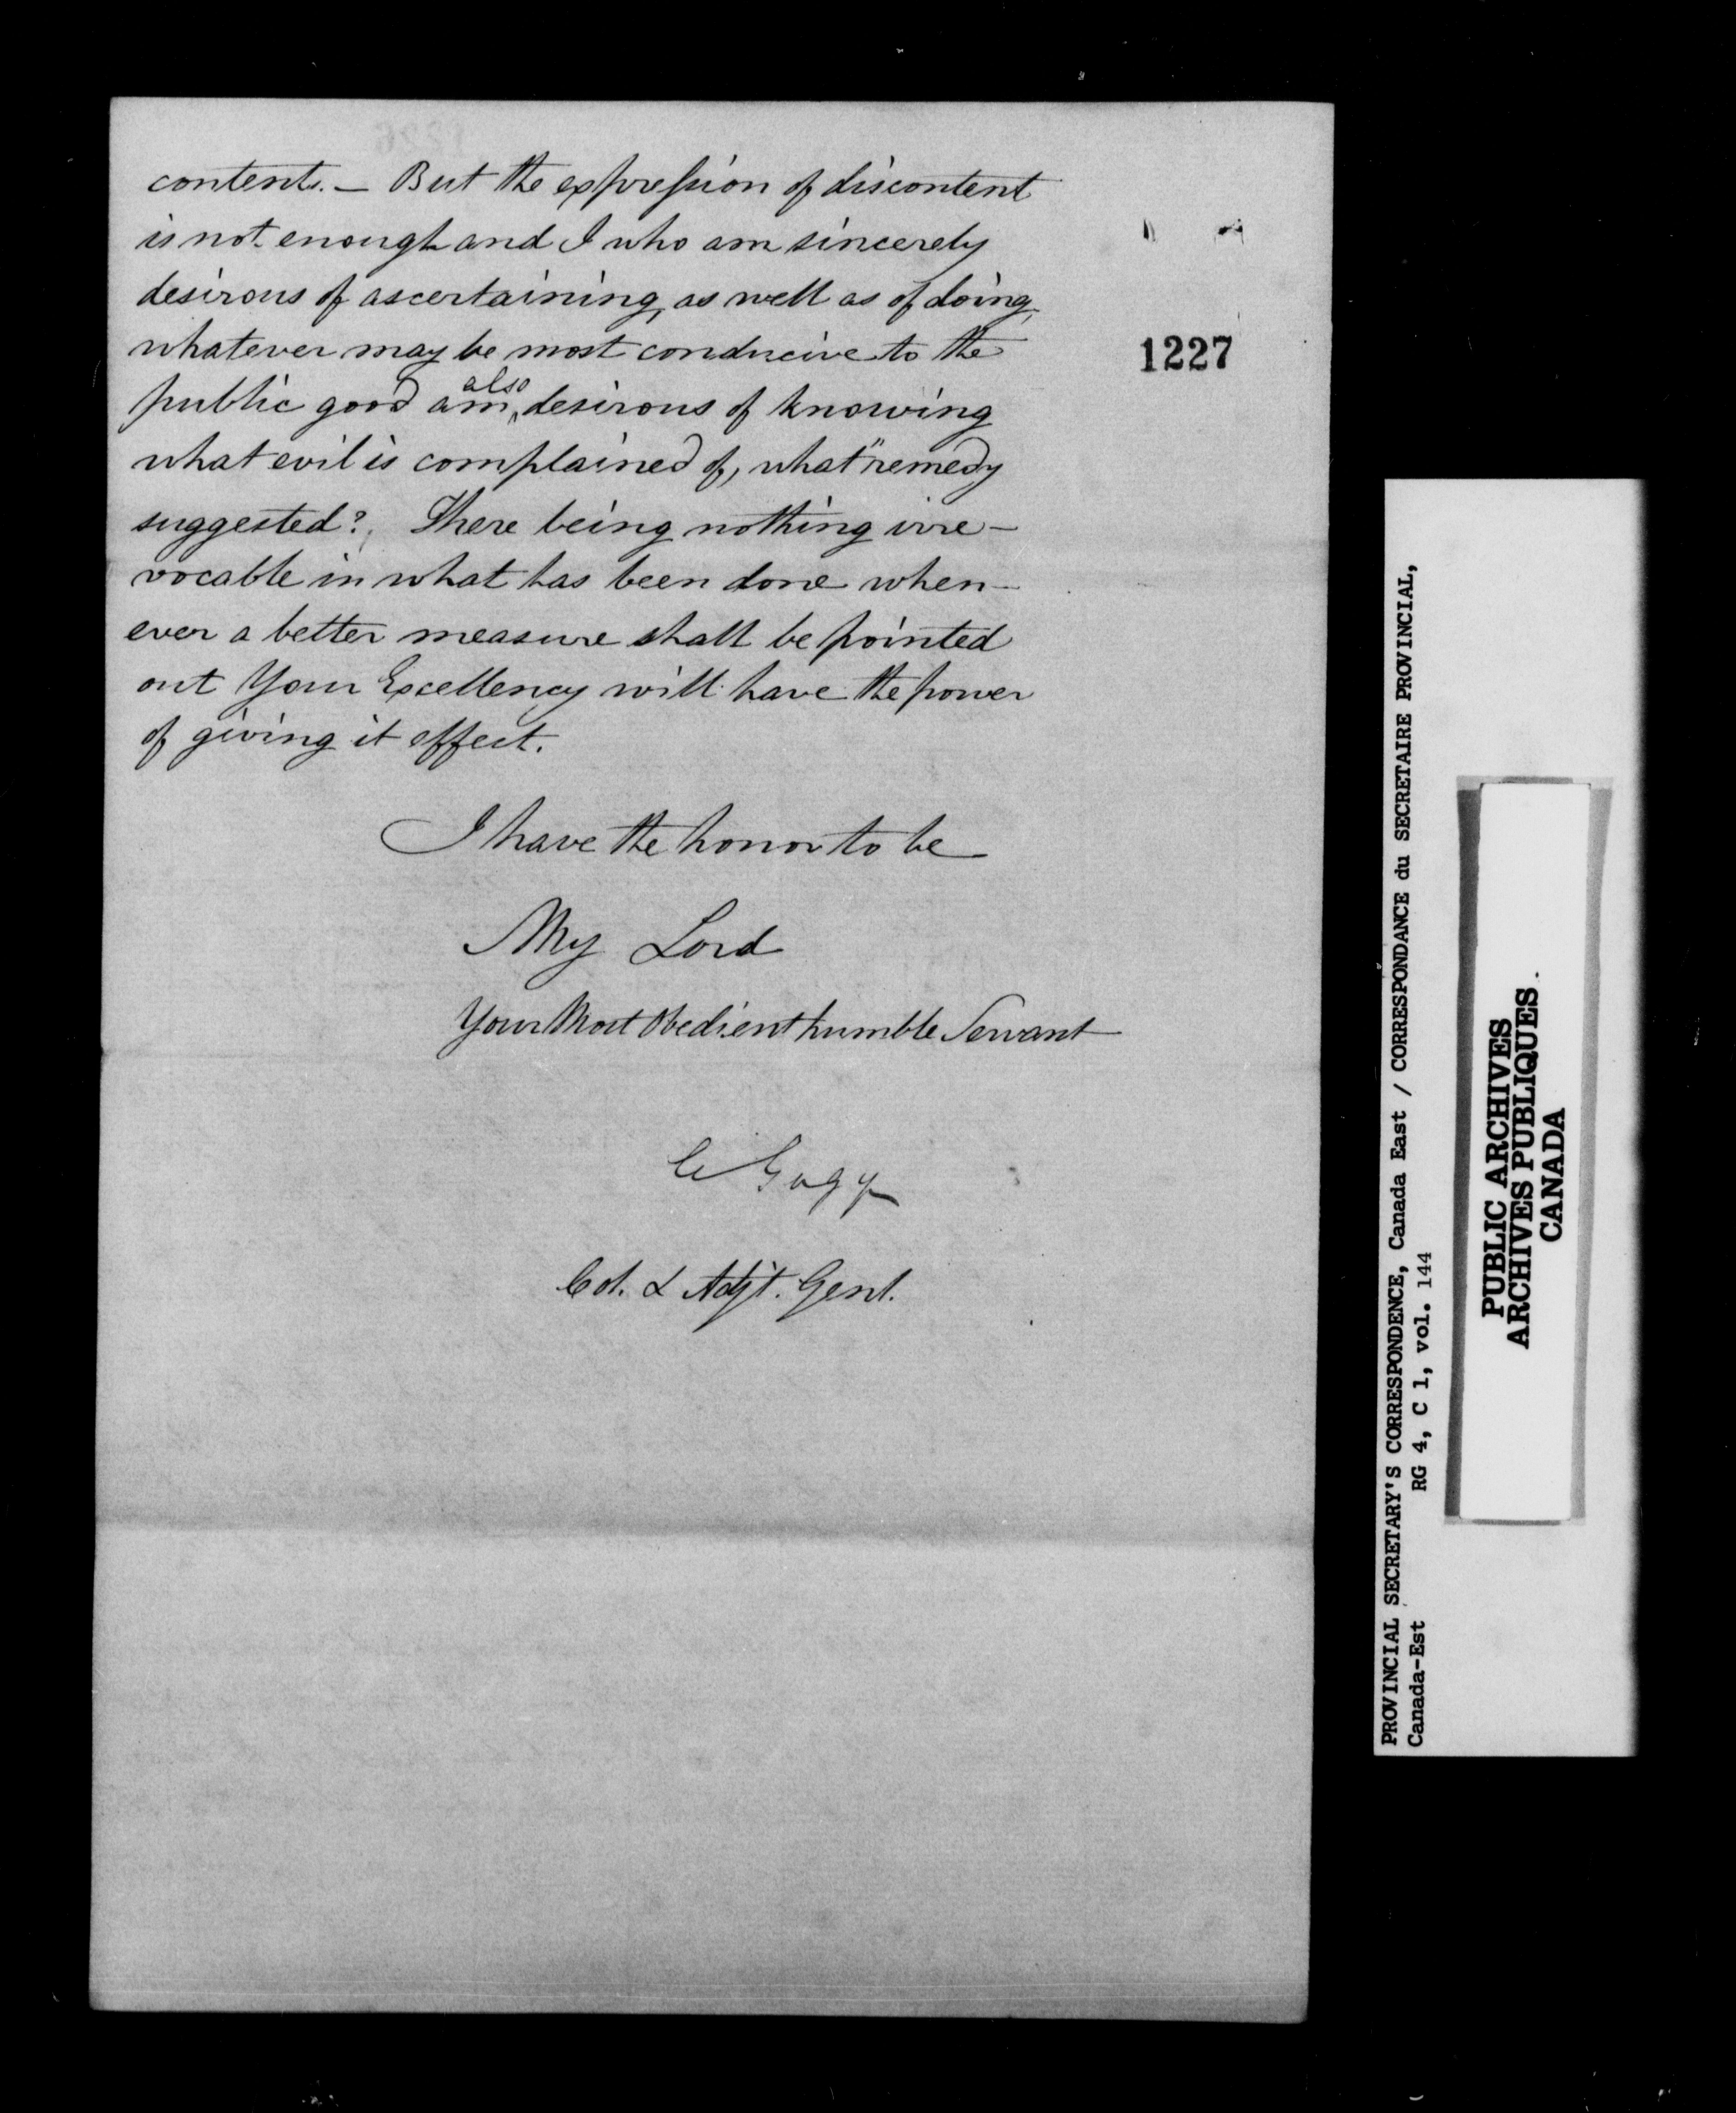 contents. — But the expression of discontent
is not enough and I who am sincerely
desirous of ascertaining, as well as of doing,
whatever may be most conducive to the
public good am also desirous of knowing
what evil is complained of, what remedy
suggested? There being nothing irre-
vocable in what has been done when-
ever a better measure shall be pointed
out Your Excellency will have the power
of giving it effect.
I have the honor to be
My Lord
Your Most Obedient humble Servant
Gugy
Col. & Adjt. Genl.
1227
PROVINCIAL SECRETARY'S CORRESPONDENCE, Canada East / CORRESPONDANCE du SECRETAIRE PROVINCIAL,
Canada-Est RG 4, C 1, vol. 144
PUBLIC ARCHIVES
ARCHIVES PUBLIQUES
CANADA